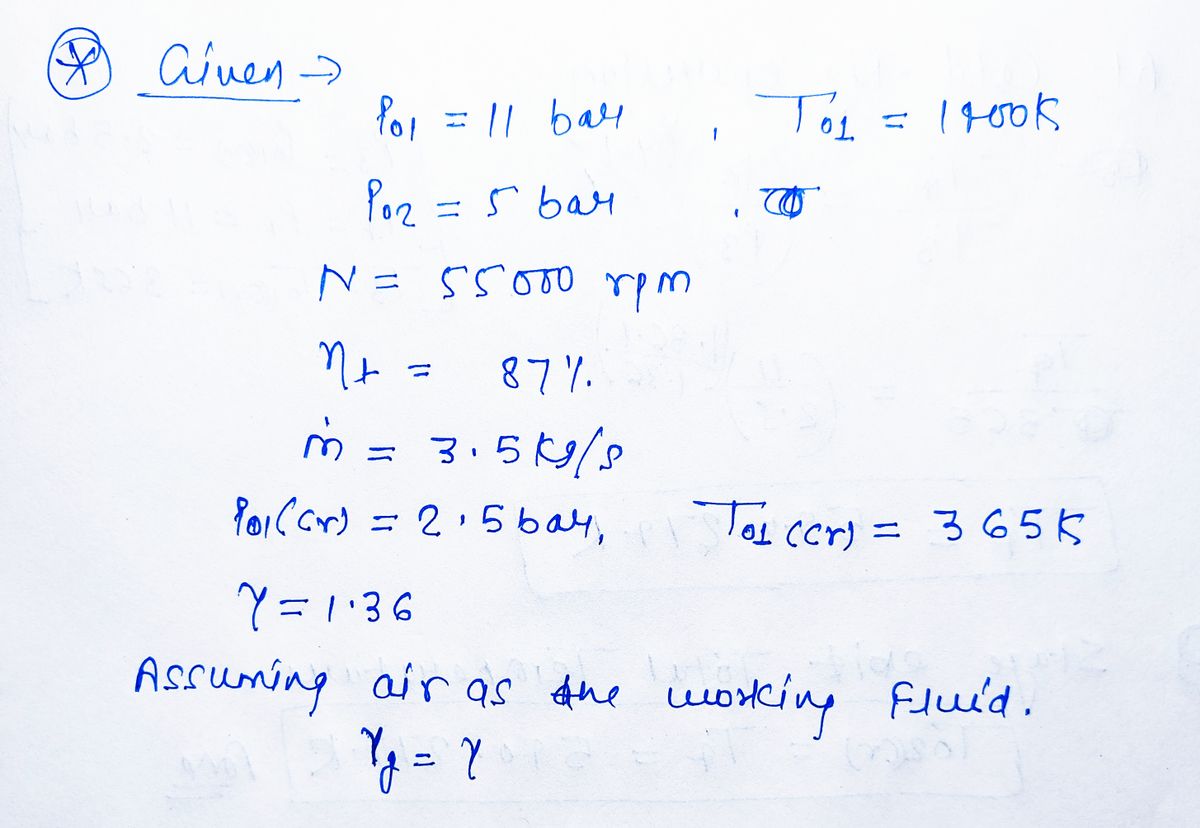 Given →
P01 = 11 bar , T01 = 1400K
P02 = 5 bar ,
N = 55000 rpm
ηt = 87%.
ṁ = 3.5 kg/s
P01(cr) = 2.5 bar, T01(cr) = 365K
γ = 1.36
Assuming air as the working fluid.
γg = γ